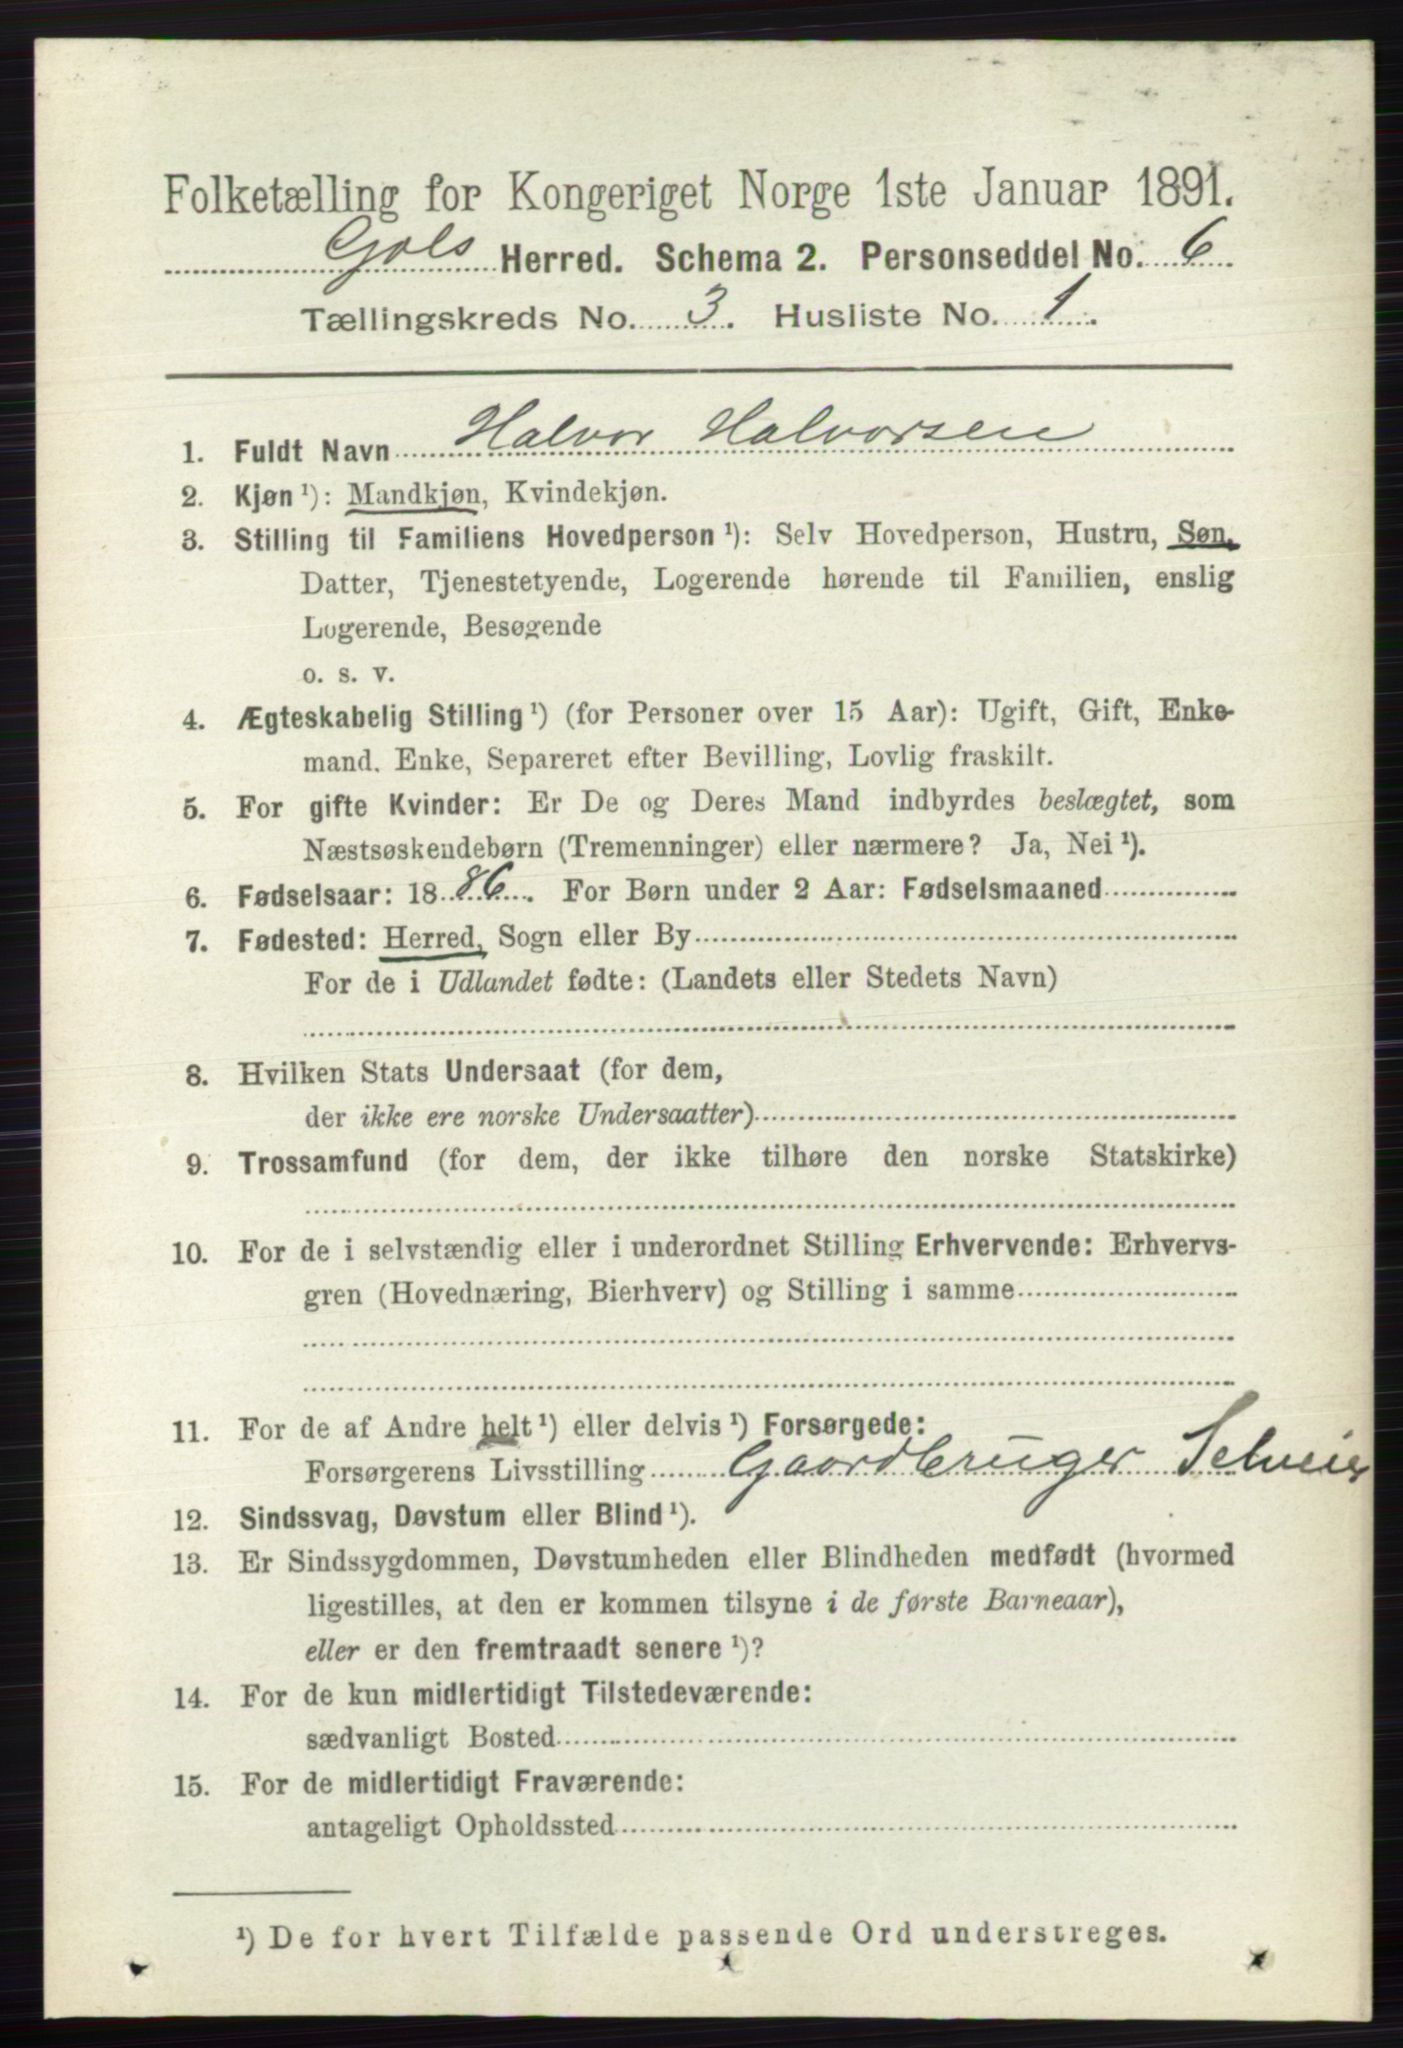 Folketælling for Kongeriget Norge 1ste Januar 1891.
Gols Herred. Schema 2. Personseddel No. 6
Tællingskreds No. 3. Husliste No. 1.
1. Fuldt Navn Halvor Halvorsen
2. Kjøn ¹): Mandkjøn, Kvindekjøn.
3. Stilling til Familiens Hovedperson ¹): Selv Hovedperson, Hustru, Søn,
Datter, Tjenestetyende, Logerende hørende til Familien, enslig
Logerende, Besøgende
o. s. v.
4. Ægteskabelig Stilling ¹) (for Personer over 15 Aar): Ugift, Gift, Enke-
mand. Enke, Separeret efter Bevilling, Lovlig fraskilt.
5. For gifte Kvinder: Er De og Deres Mand indbyrdes beslægtet, som
Næstsøskendebørn (Tremenninger) eller nærmere? Ja, Nei ¹).
6. Fødselsaar: 1886. For Børn under 2 Aar: Fødselsmaaned
7. Fødested: Herred, Sogn eller By
For de i Udlandet fødte: (Landets eller Stedets Navn)
8. Hvilken Stats Undersaat (for dem,
der ikke ere norske Undersaatter)
9. Trossamfund (for dem, der ikke tilhøre den norske Statskirke)
10. For de i selvstændig eller i underordnet Stilling Erhvervende: Erhvervs-
gren (Hovednæring, Bierhverv) og Stilling i samme
11. For de af Andre helt ¹) eller delvis ¹) Forsørgede:
Forsørgerens Livsstilling Gaardbruger Selveier
12. Sindssvag, Døvstum eller Blind ¹).
13. Er Sindssygdommen, Døvstumheden eller Blindheden medfødt (hvormed
ligestilles, at den er kommen tilsyne i de første Barneaar),
eller er den fremtraadt senere ¹)?
14. For de kun midlertidigt Tilstedeværende:
sædvanligt Bosted
15. For de midlertidigt Fraværende:
antageligt Opholdssted
¹) De for hvert Tilfælde passende Ord understreges.